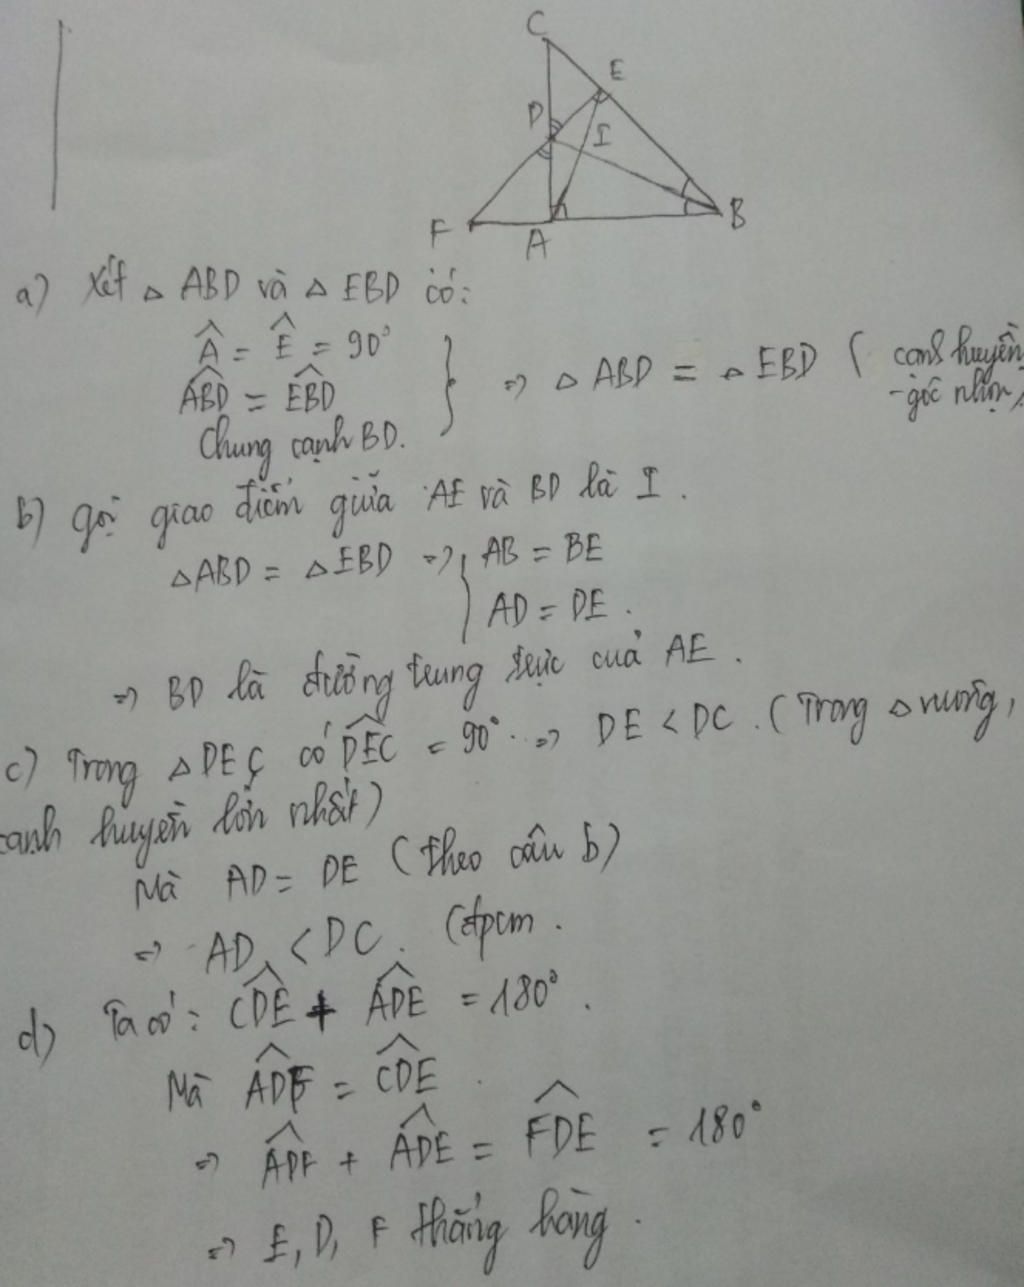 C
E
D
I
F
A
B
a) Xét △ ABD và △ EBD có:
Â = Ê = 90°
ABD̂ = EBD̂
Chung cạnh BD.
} => △ ABD = △ EBD ( cạnh huyền
- góc nhọn)
b) gọi giao điểm giữa AE và BD là I.
△ABD = △EBD => { AB = BE
AD = DE.
=> BD là đường trung trực của AE.
c) Trong △ DEC có DEĈ = 90° => DE < DC. (Trong △ vuông,
cạnh huyền lớn nhất)
Mà AD = DE (theo câu b)
=> AD < DC. (đpcm.
d) Ta có: CDÊ + ADÊ = 180°.
Mà ADF̂ = CDÊ.
=> ADF̂ + ADÊ = FDÊ = 180°
=> E, D, F thẳng hàng.